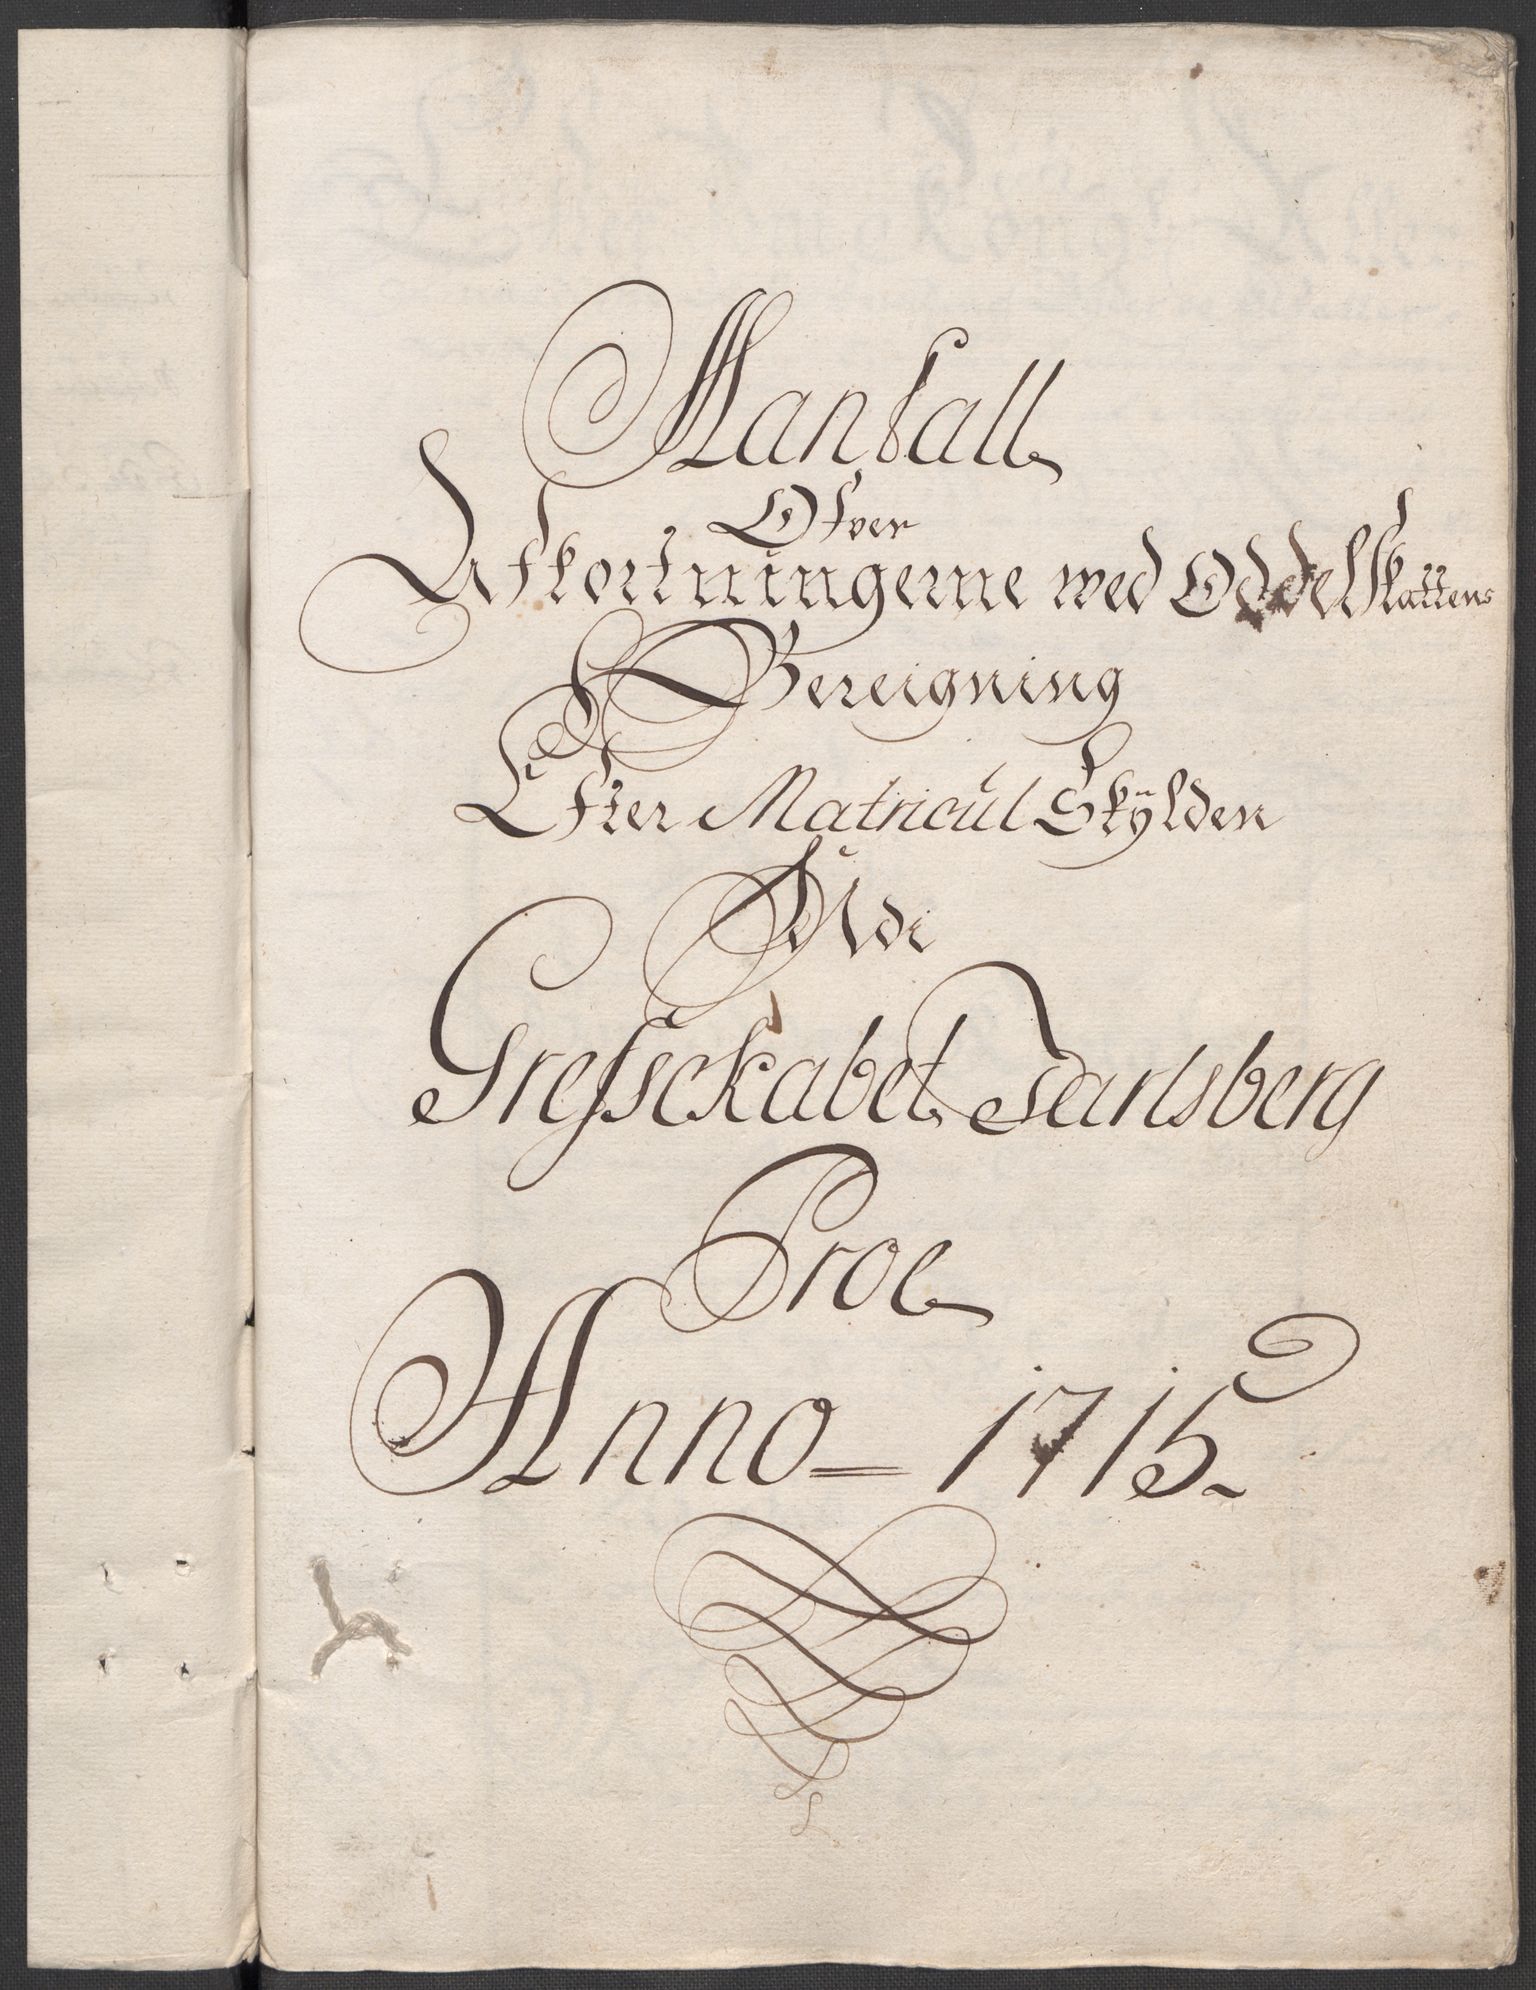 Mantall
Ofver
Afkortningerne wed OddelSkattens
Bereigning
Efter Matricul Skÿlden
Udi
Grefsckabet Jarlsberg
Proe
Anno = 1715